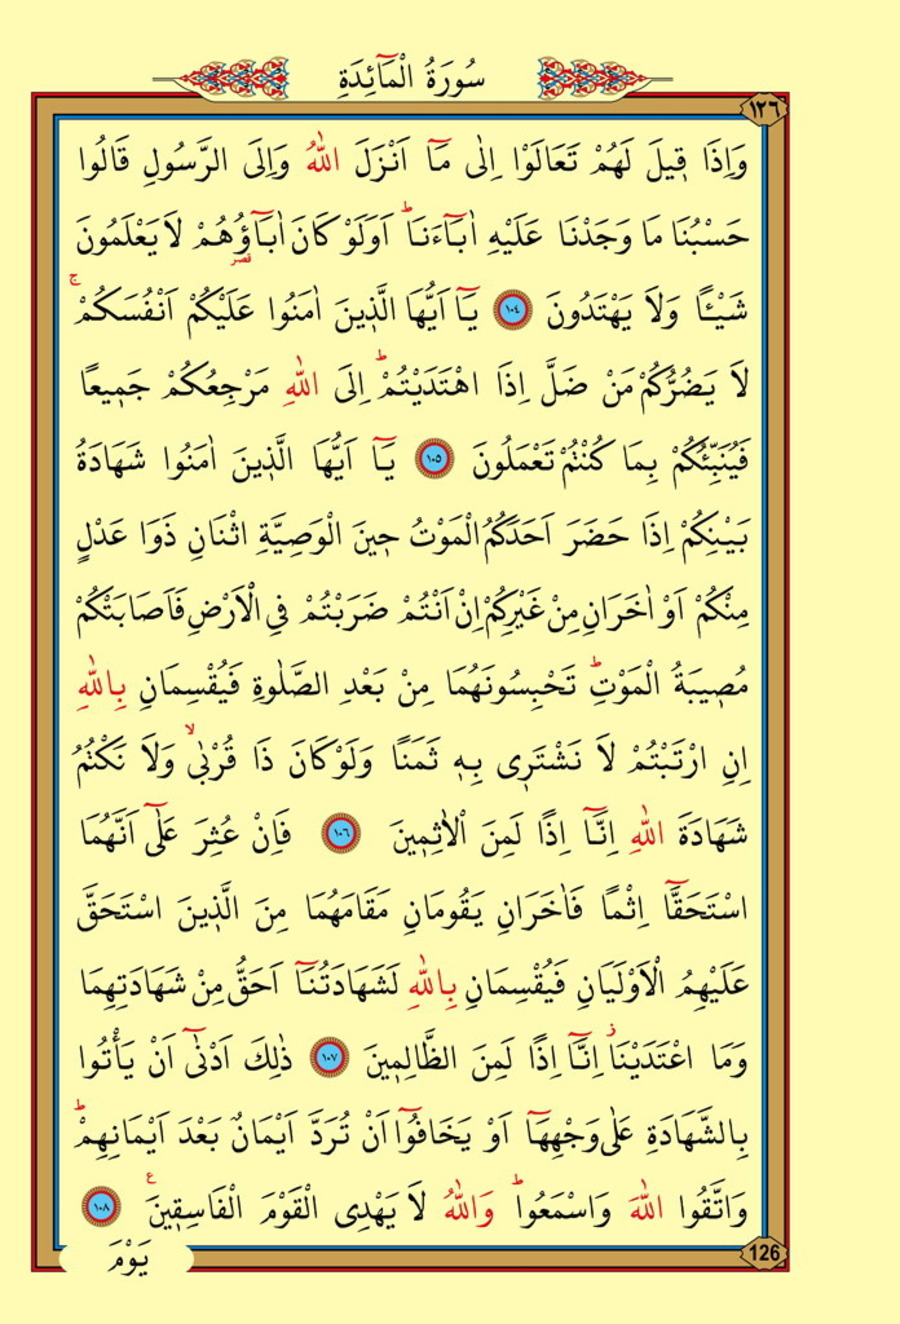 سُورَةُ الْمَآئِدَةِ
١٢٦
وَاِذَا قٖيلَ لَهُمْ تَعَالَوْا اِلٰى مَٓا اَنْزَلَ اللّٰهُ وَاِلَى الرَّسُولِ قَالُوا
حَسْبُنَا مَا وَجَدْنَا عَلَيْهِ اٰبَٓاءَنَاؕ اَوَلَوْ كَانَ اٰبَٓاؤُ۬هُمْ لَا يَعْلَمُونَ
شَيْـًٔا وَلَا يَهْتَدُونَ ١٠٤ يَٓا اَيُّهَا الَّذٖينَ اٰمَنُوا عَلَيْكُمْ اَنْفُسَكُمْۚ
لَا يَضُرُّكُمْ مَنْ ضَلَّ اِذَا اهْتَدَيْتُمْؕ اِلَى اللّٰهِ مَرْجِعُكُمْ جَمٖيعًا
فَيُنَبِّئُكُمْ بِمَا كُنْتُمْ تَعْمَلُونَ ١٠٥ يَٓا اَيُّهَا الَّذٖينَ اٰمَنُوا شَهَادَةُ
بَيْنِكُمْ اِذَا حَضَرَ اَحَدَكُمُ الْمَوْتُ حٖينَ الْوَصِيَّةِ اثْنَانِ ذَوَا عَدْلٍ
مِنْكُمْ اَوْ اٰخَرَانِ مِنْ غَيْرِكُمْ اِنْ اَنْتُمْ ضَرَبْتُمْ فِي الْاَرْضِ فَاَصَابَتْكُمْ
مُصٖيبَةُ الْمَوْتِؕ تَحْبِسُونَهُمَا مِنْ بَعْدِ الصَّلٰوةِ فَيُقْسِمَانِ بِاللّٰهِ
اِنِ ارْتَبْتُمْ لَا نَشْتَرٖى بِهٖ ثَمَنًا وَلَوْ كَانَ ذَا قُرْبٰىۙ وَلَا نَكْتُمُ
شَهَادَةَ اللّٰهِ اِنَّٓا اِذًا لَمِنَ الْاٰثِمٖينَ ١٠٦ فَاِنْ عُثِرَ عَلٰٓى اَنَّهُمَا
اسْتَحَقَّٓا اِثْمًا فَاٰخَرَانِ يَقُومَانِ مَقَامَهُمَا مِنَ الَّذٖينَ اسْتَحَقَّ
عَلَيْهِمُ الْاَوْلَيَانِ فَيُقْسِمَانِ بِاللّٰهِ لَشَهَادَتُنَٓا اَحَقُّ مِنْ شَهَادَتِهِمَا
وَمَا اعْتَدَيْنَاؗ اِنَّٓا اِذًا لَمِنَ الظَّالِمٖينَ ١٠٧ ذٰلِكَ اَدْنٰٓى اَنْ يَأْتُوا
بِالشَّهَادَةِ عَلٰى وَجْهِهَٓا اَوْ يَخَافُٓوا اَنْ تُرَدَّ اَيْمَانٌ بَعْدَ اَيْمَانِهِمْؕ
وَاتَّقُوا اللّٰهَ وَاسْمَعُواؕ وَاللّٰهُ لَا يَهْدِى الْقَوْمَ الْفَاسِقٖينَࣖ ١٠٨
يَوْمَ
126